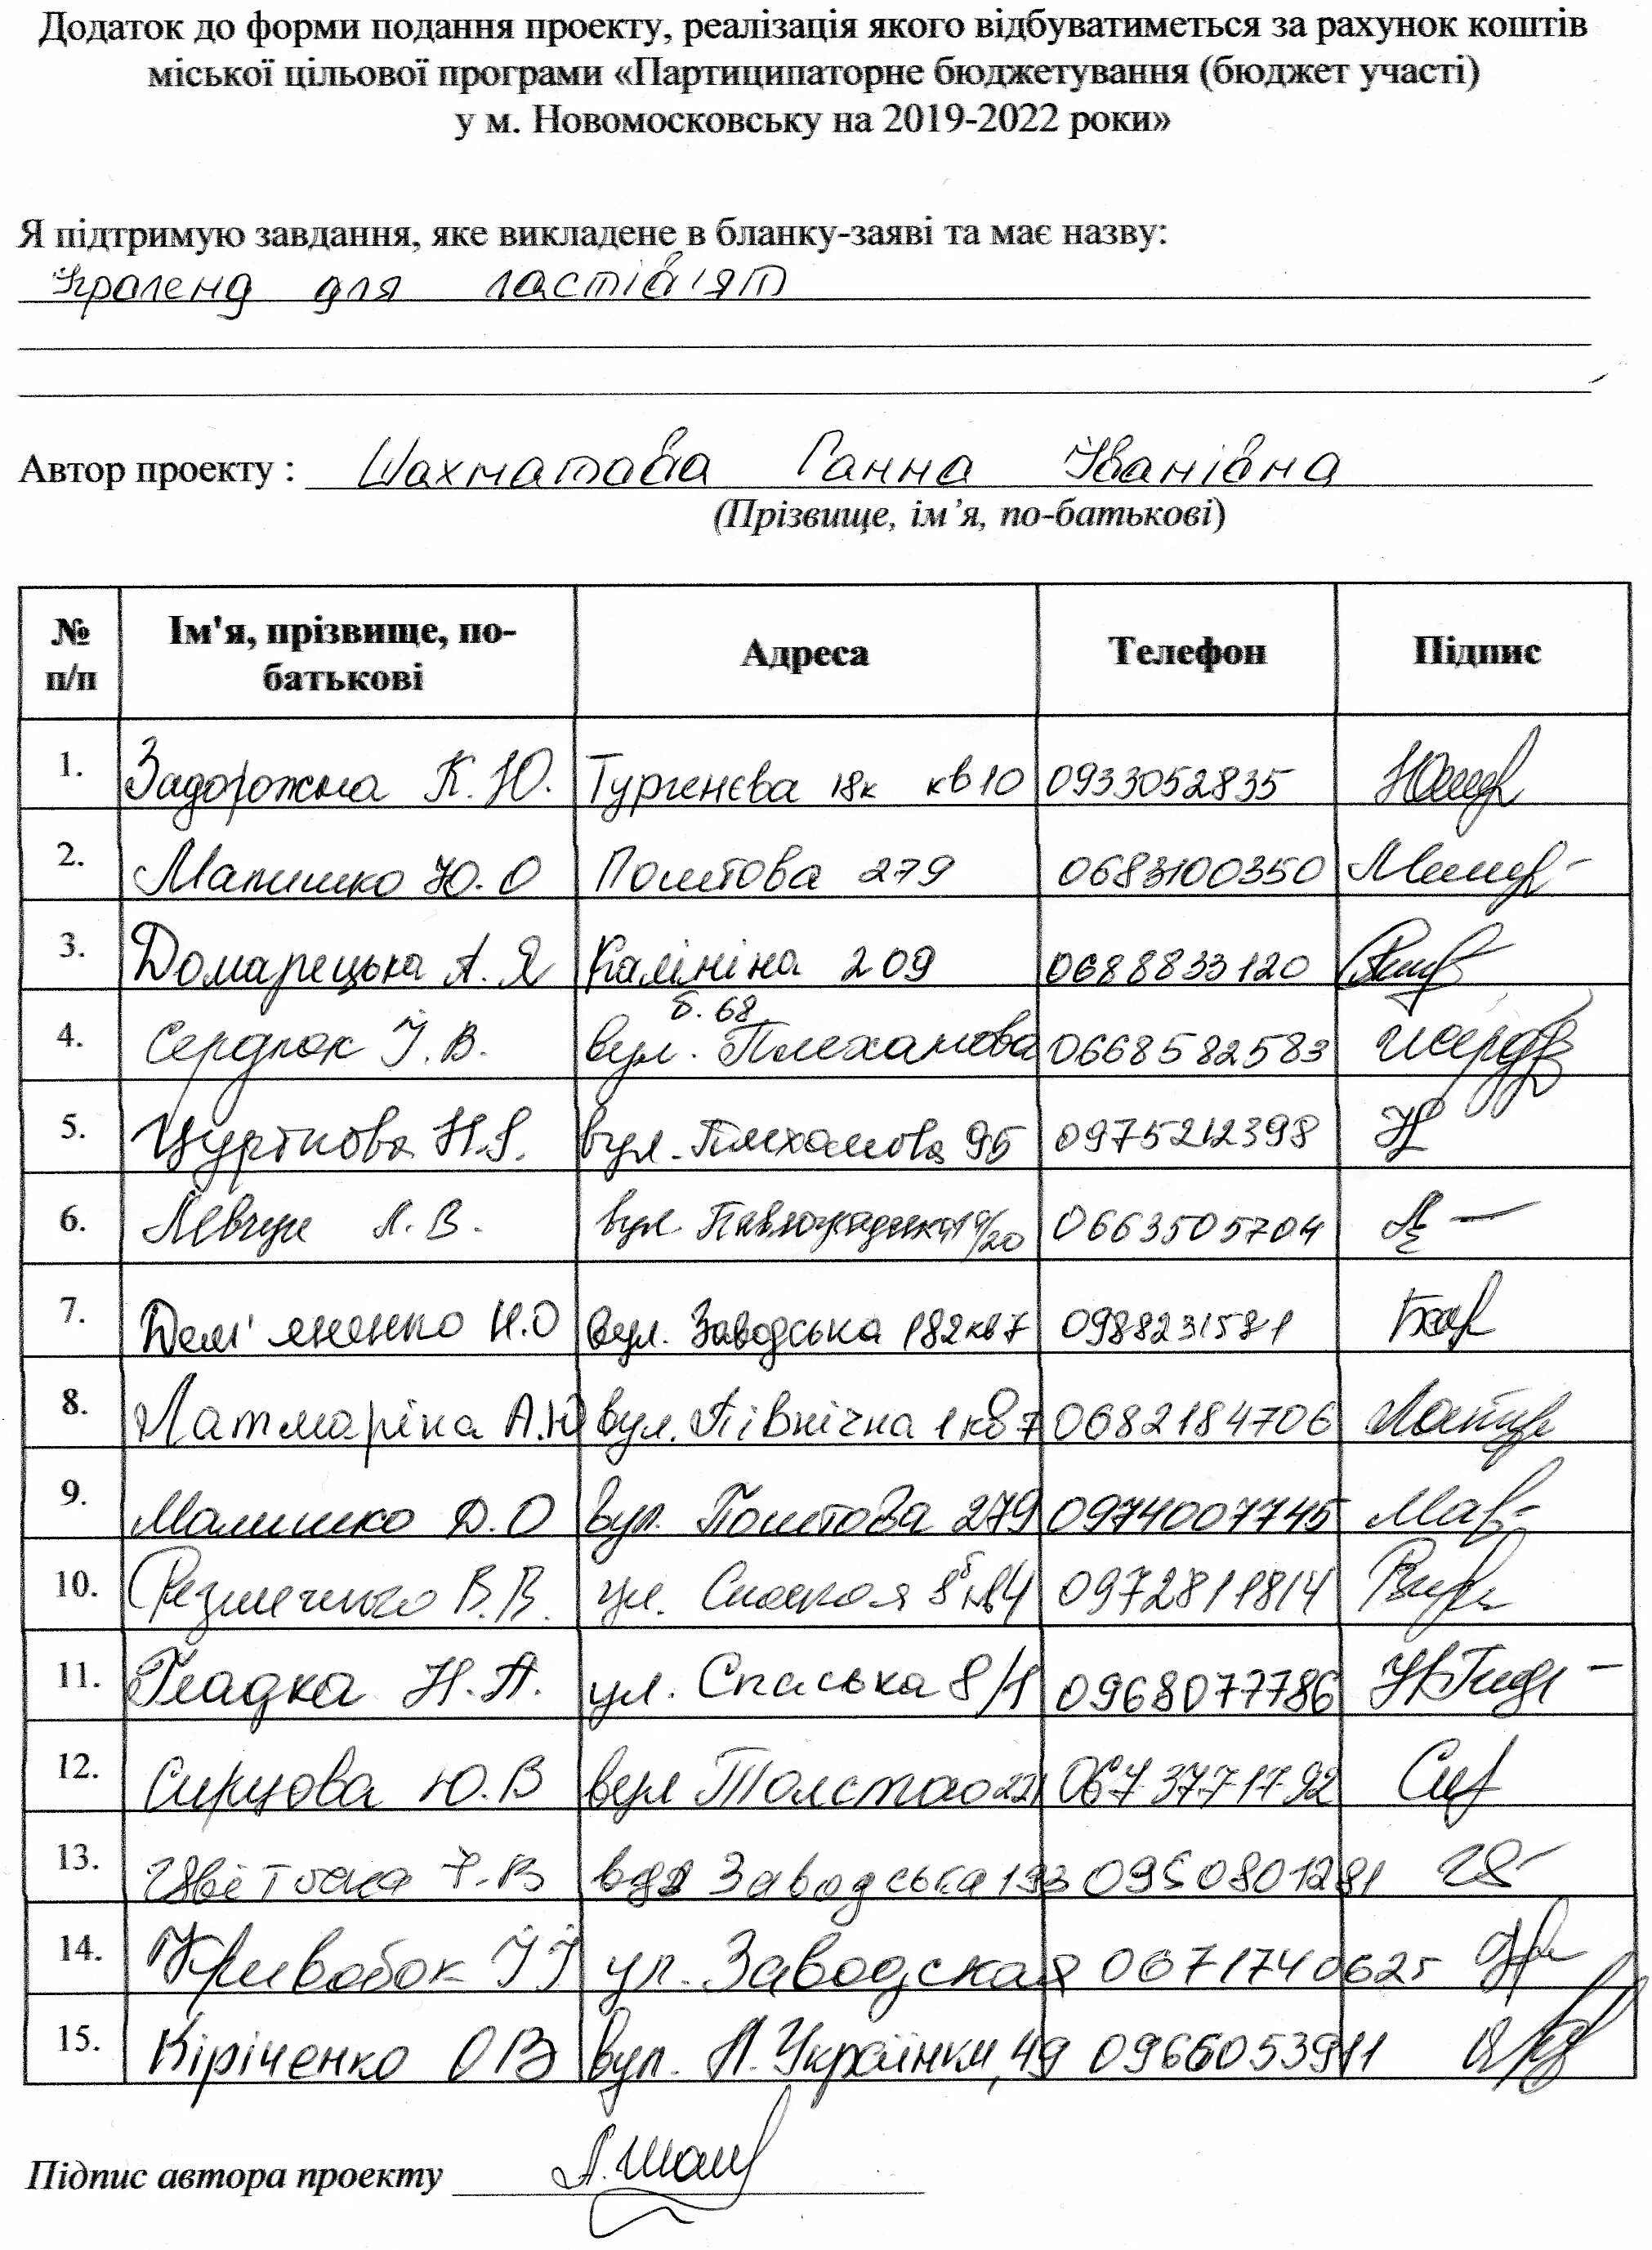 Додаток до форми подання проекту, реалізація якого відбуватиметься за рахунок коштів
міської цільової програми «Партиципаторне бюджетування (бюджет участі)
у м. Новомосковську на 2019-2022 роки»
Я підтримую завдання, яке викладене в бланку-заяві та має назву:
для ластів'ят
Автор проекту : Шахматова Ганна Іванівна
(Прізвище, ім’я, по-батькові)
№ п/п Ім'я, прізвище, по-батькові Адреса Телефон Підпис
1. Задорожна К.Ю. Тургенєва 18к кв10 0933052835
2. Малишко Ю.О Поштова 279 0683100350
3. Домарецька А.Я Калініна 209 0688833120
б. 68
4. Сердюк І.В. вул. Плеханова 0668582583
5. Н.Я. вул. Плеханова 95 0975212398
6. Левчук Л.В. вул. 19/20 0663505704
7. Дем'яненко Н.О вул. Заводська 182кв7 0988231581
8. Латмаріна А.Ю вул. Північна 1 кв7 0682184706
9. Малишко Д.О вул. Поштова 279 0974007745
10. В.В. ул. 0972811814
11. Гладка Н.А. ул. Спаська 8/1 0968077786
12. Сирцова Ю.В вул Толстого 221 0673771792
13. Заводська 193 0950801281
14. Кривобок І І ул. Заводская 0671740625
15. Кіріченко О В вул. Л.Українки, 49 0966053911
Підпис автора проекту